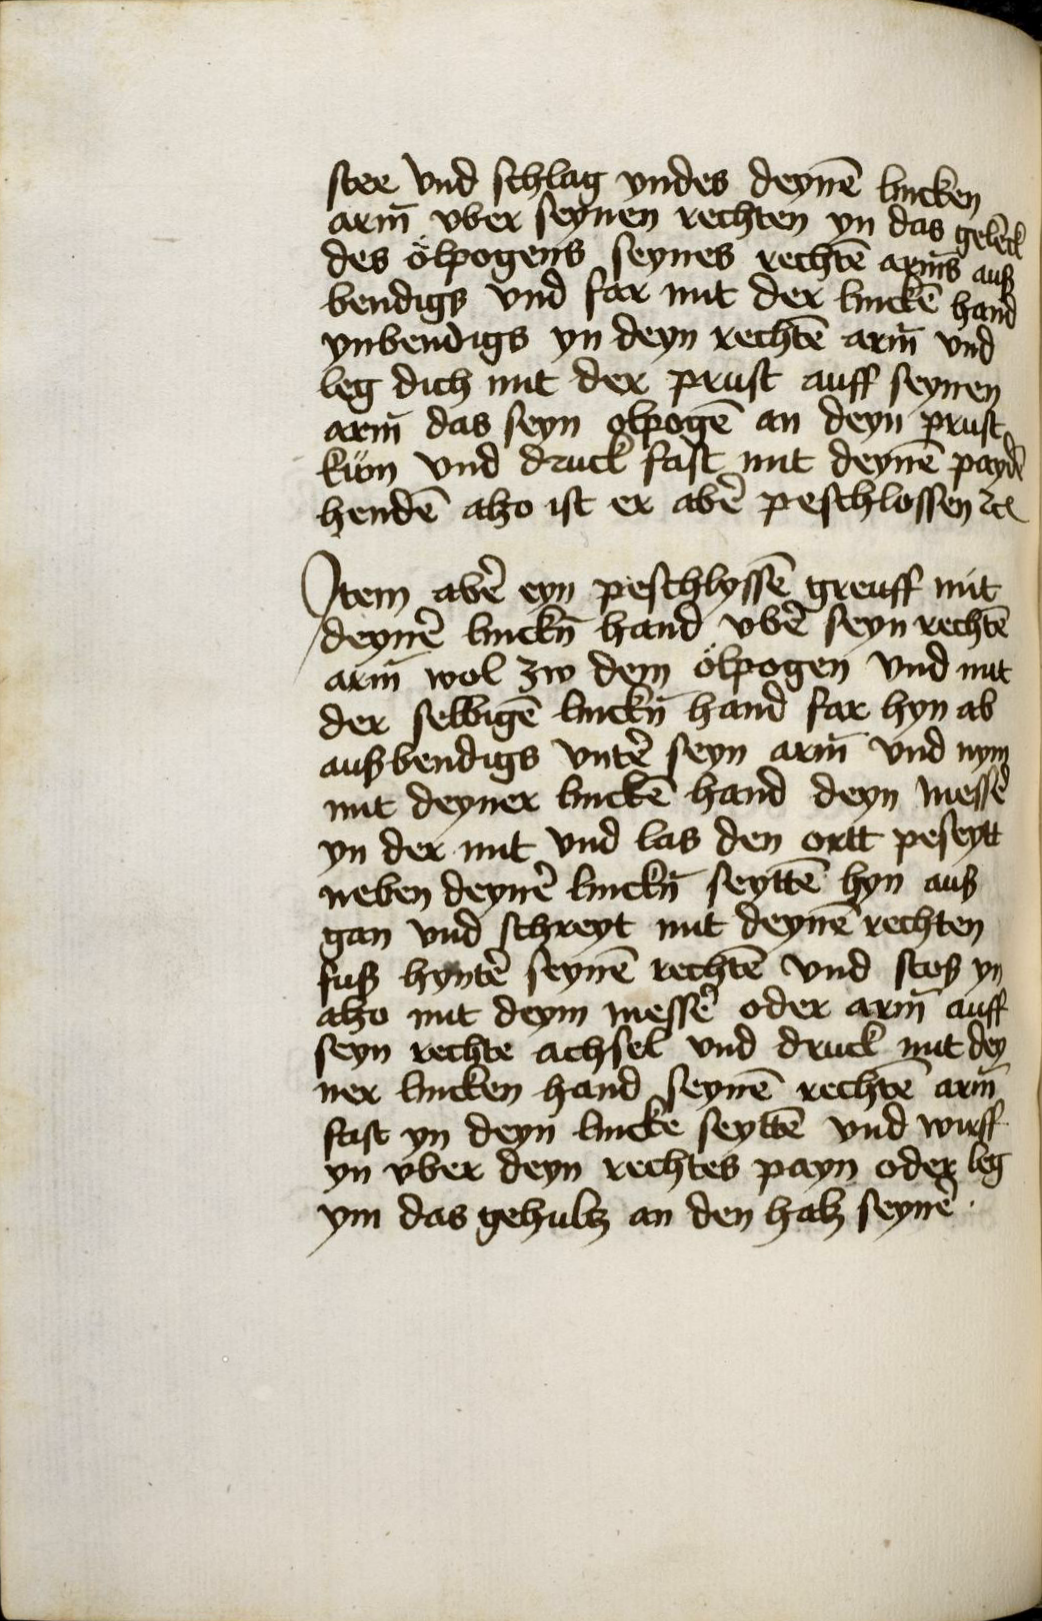 stee vnd schlag vndes deynē lincken
arm̄ vber seynen rechten yn das gelēck
des ölpogens seynes rechtē arm̄s auß
bendigs vnd far mit der linckē hand
ynbendigs yn deyn rechtē arm̄ vnd
leg dich mit der prust auff seynen
arm̄ das seyn olpogē an deyn prust
küm vnd druck fast mit deynē paydē
hendē alzo ist er abẽ peschlossen ꝛcꝭ
Item abẽ eyn peschlyssē greuff mit
deynẽ linckn̄ hand vbẽ seyn rechtē
arm̄ wol zw dem ölpogen vnd mit
der selbigē linckn̄ hand far hyn ab
außbendigs vntẽ seyn arm̄ vnd nym
mit deyner linckē hand deyn messẽ
yn der mit vnd las den ortt peseytt
neben deynẽ linckn̄ seyttē hyn auß
gan vnd schreyt mit deynē rechten
fuß hyntẽ seynē rechtē vnd stoß yn
alzo mit deym messẽ oder arm̄ auff
seyn rechte achsel vnd druck mit dey
ner lincken hand seynē rechtē arm̄
fast yn deyn lincke seyttē vnd wirff
yn vber deyn rechtes payn oder leg
ym das gehultz an den halz seynẽ ·